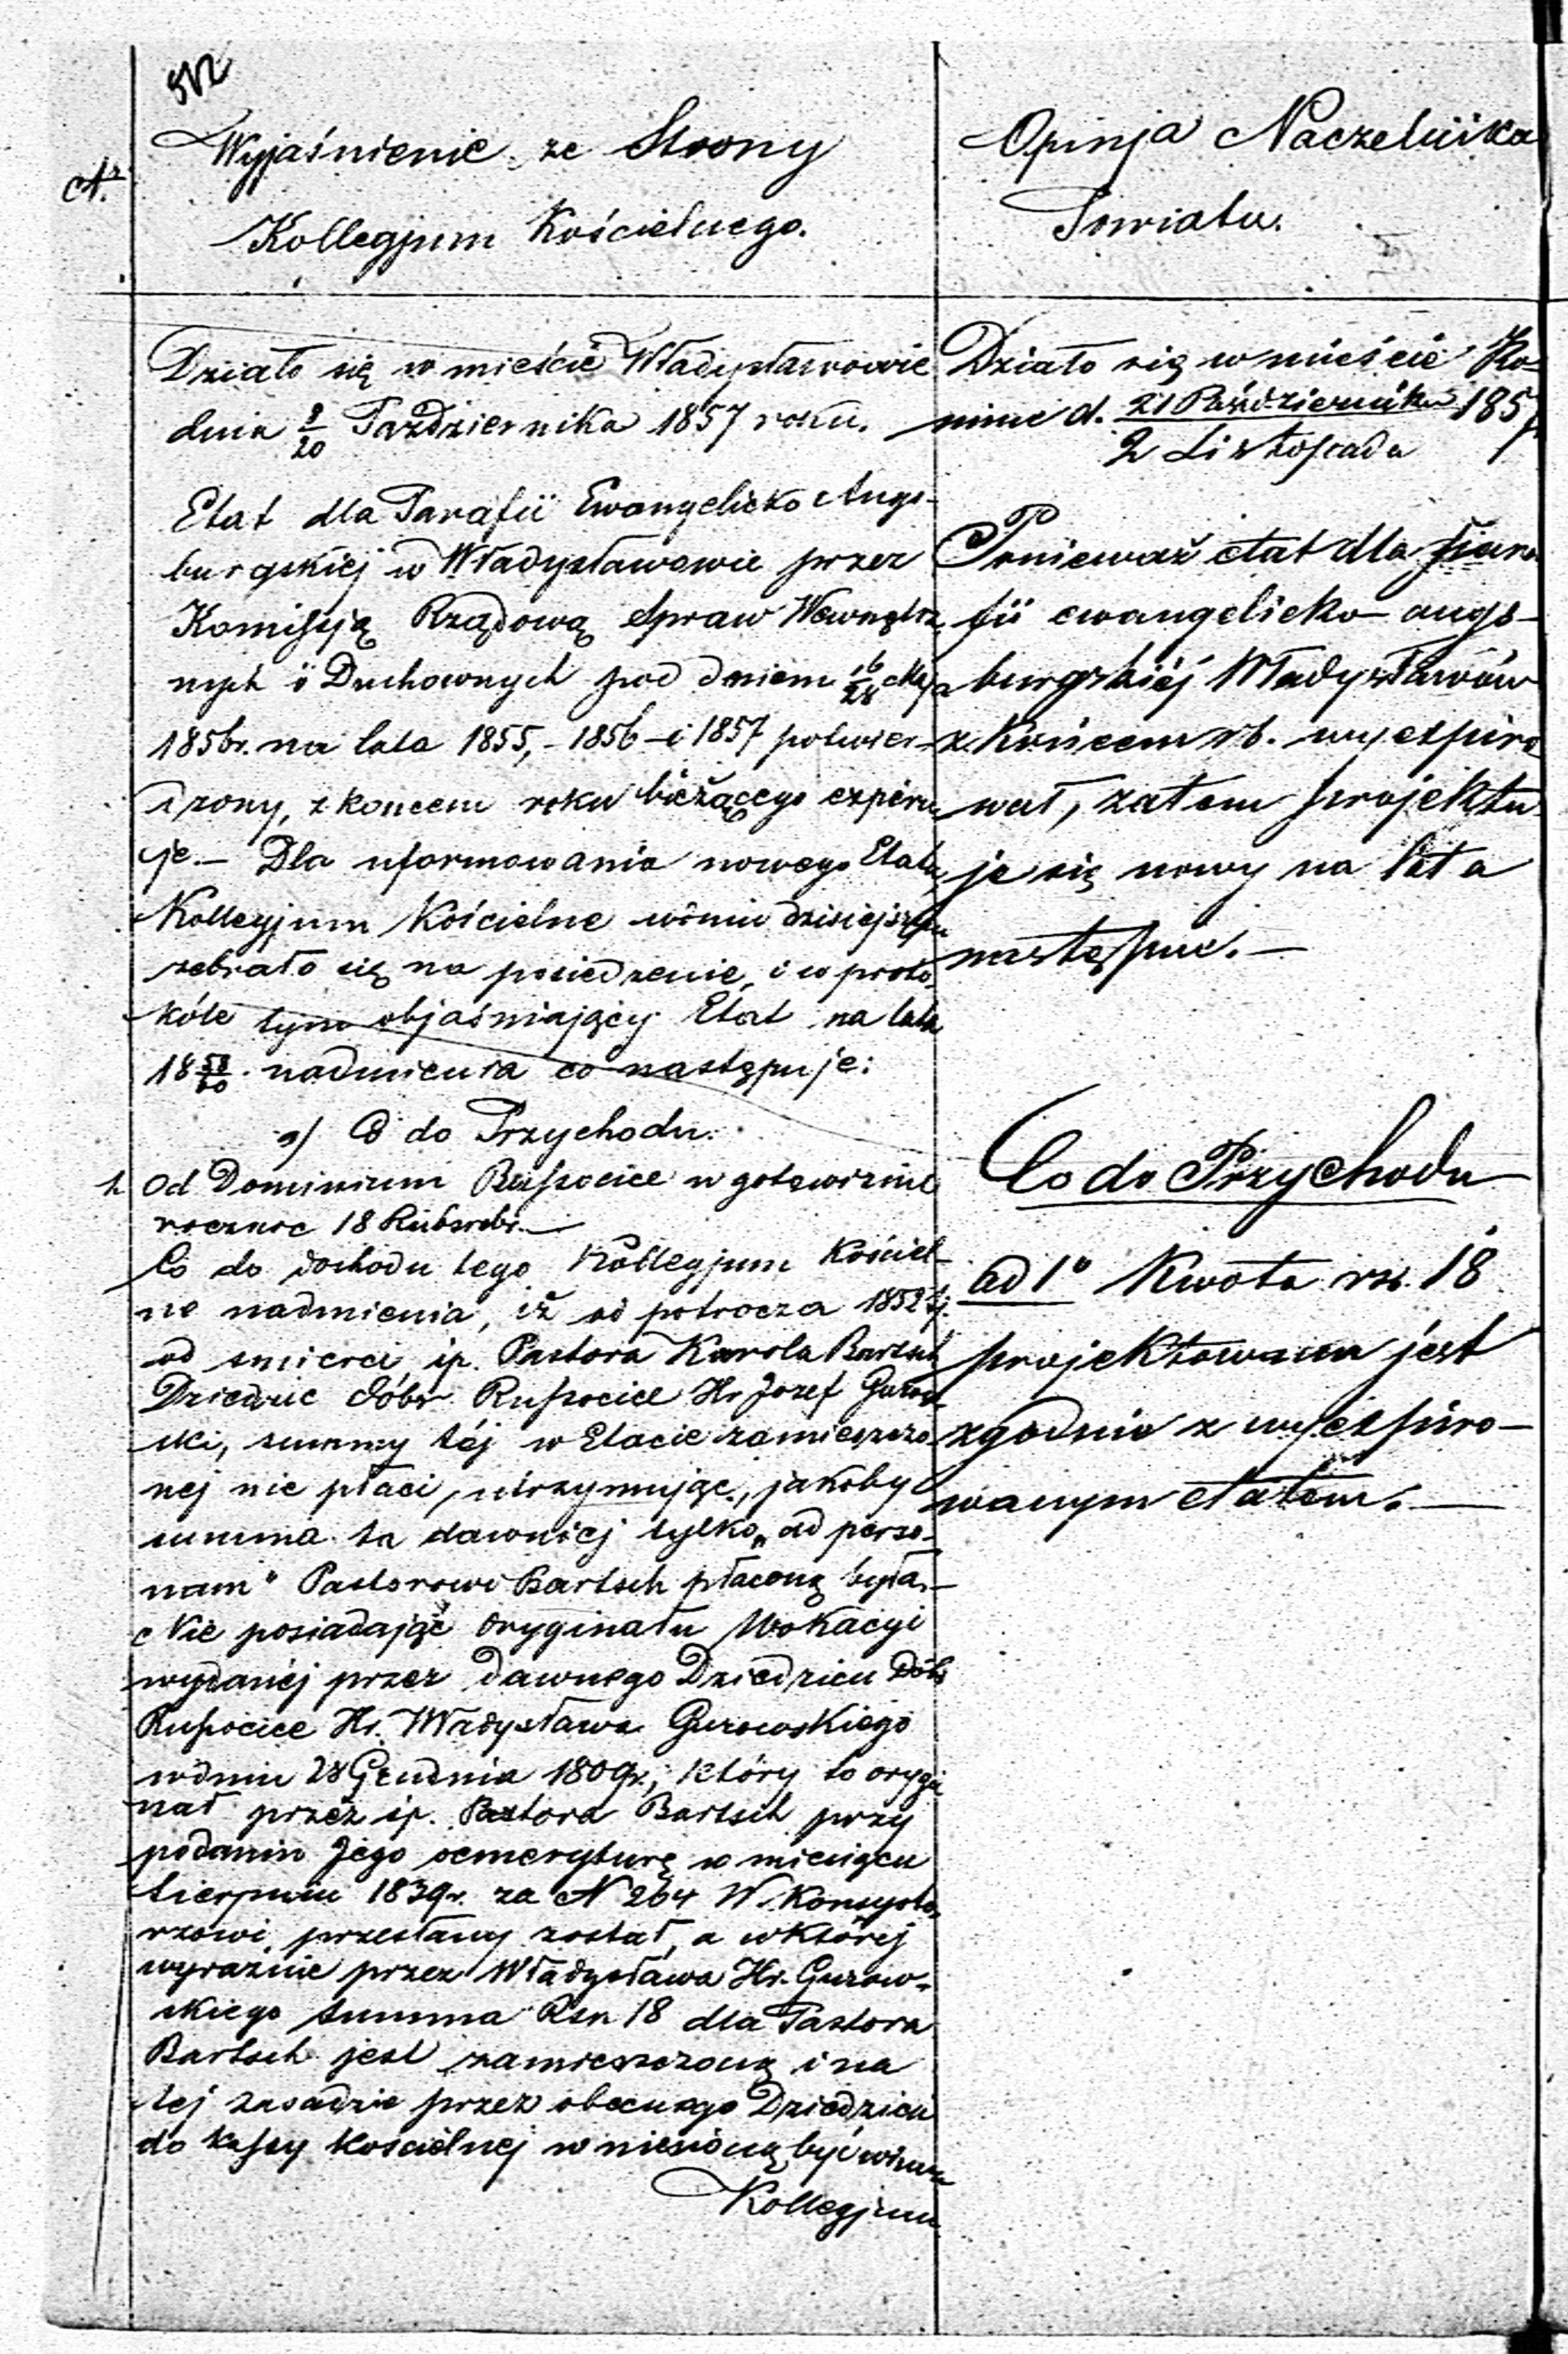 502
Nr.
Wyjaśnienie ze Strony
Kollegjum Kościelnego.
Działo się w mieście Władysławowie
dnia 8/20 Października 1857 roku.
Etat dla Parafii Ewangelicko Augs-
burgskiej w Władysławowie przez
Komissyją Rządową Spraw Wewnętrz
nych i Duchownych pod dniem 16/28 Maja
1856r. na lata 1855, - 1856 - i 1857 potwier-
dzony, z koncem roku bieżącego expiru
je. - Dla uformowania nowego Etatu,
Kollegjum Kościelne w dniu dzisiejszym
zebrało się na posiedzenie, i w proto-
kóle tym objaśniający Etat na lata
18 58/60 nadmienia co następuje:
a) Co do Przychodu.
1. Od Dominium Russocice w gotowiznie
rocznie 18 Rubsrebr. -
Co do dochodu tego Kollegjum Kościel-
ne nadmienia, iż od potrocza 1852 tj.
od smierci śp. Pastora Karola Bartsch
Dziedzic dóbr Russocice Hr. Jozef Gurow-
ski, summy téj w Etacie zamieszczo-
nej nie płaci, utrzymując, jakoby
summa ta dawniej tylko „ad perso-
nam" Pastorowi Bartsch płaconą była. -
Nie posiadając oryginału Wokacyi
wydanéj przez dawnego Dziedzica Dóbr
Russocice Hr. Władysława Gurowskiego
w dniu 28 Grudnia 1809r., który to orygi
nał przez śp. Pastora Bartsch przy
podaniu Jego o emeryturę w miesiącu
Sierpniu 1839r. za N 264 W. Konsysto-
rzowi przesłany został, a w której
wyraznie przez Władysława Hr. Gurow-
skiego summa Rsr. 18 dla Pastora
Bartsch jest zamieszczoną i na
tej zasadzie przez obecnego Dziedzica
do kassy Koscielnej wniesioną być winna
Kollegjum
Opinja Naczelnika
Powiatu.
Działo się w mieście Ko-
ninie d. 21 Października / 2 Listopada 1857 r
Ponieważ etat dla para
fii ewangelicko augs-
burgskiéj Władysławów
z końcem rb. wyexpiro
wał, zatem projektu
je się nowy na lata
następne. -
Co do Przychodu
ad 1º Kwota rsr. 18
projektowana jest
zgodnie z wyexpiro-
wanym etatem. -